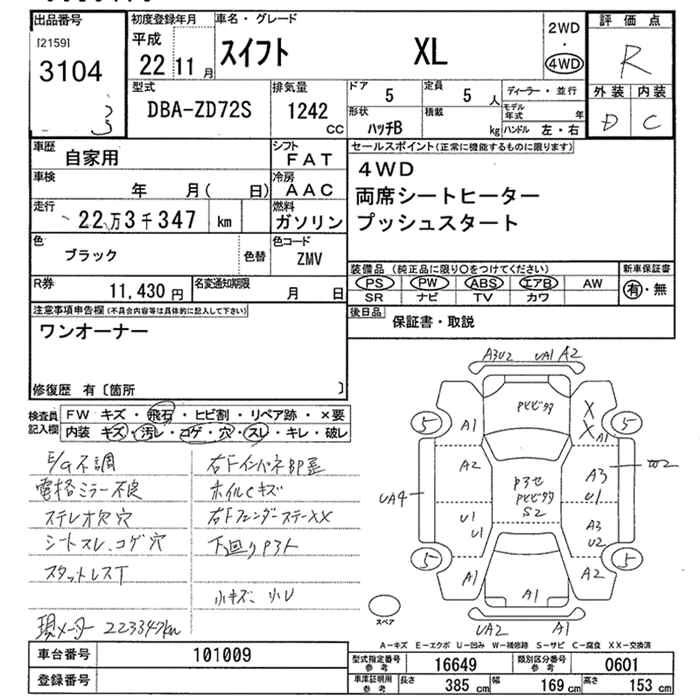 出品番号
[2159]
3104
3
初度登録年月
平成
22 11月
車名・グレード
スイフト XL
2WD
・
4WD
評価点
R
外装 内装
D C
型式
DBA-ZD72S
排気量
1242
CC
ドア
5
定員
5 人
形状
ハッチB
積載
kg
ディーラー・並行
モデル年式 年
ハンドル 左・右
車歴
自家用
シフト
FAT
車検
年 月( 日)
冷房
AAC
走行
22万3千347 km
燃料
ガソリン
色
ブラック
色替
色コード
ZMV
R券
11,430円
名変通知期限
月 日
セールスポイント(正常に機能するものに限ります)
4WD
両席シートヒーター
プッシュスタート
装備品(純正品に限り○をつけてください)
新車保証書
PS PW ABS エアB AW
SR ナビ TV カワ
有・無
後日品
保証書・取説
注意事項申告欄(不具合内容等は具体的に記入して下さい)
ワンオーナー
修復歴 有〔箇所 〕
検査員記入欄
FW キズ・飛石・ヒビ割・リペア跡・×要
内装 キズ・汚レ・コゲ・穴・スレ・キレ・破レ
E/G不調
電格ミラー不良
ステレオ欠穴
シートスレ、コゲ穴
スタットレスT
現メーター 223347km
右Fインパネ部歪
ホイルCキズ
右FフェンダーステーXX
下廻りPタト
小キズ、小U
A3U2 UA1 A2
PヒビワレX
X
A1
A1
5 5
A2
A3
W2
UA4
U1
P3セ
Pヒビワレ
S2
U1
U1
A3
U2
5 5
A1
A2
A1
UA2 A1
スペア
A-キズ E-エクボ U-凹み W-補修跡 S-サビ C-腐食 XX-交換済
車台番号
101009
登録番号
型式指定番号
参考
16649
類別区分番号
参考
0601
車庫証明用
参考
長さ 385 cm 幅 169 cm 高さ 153 cm